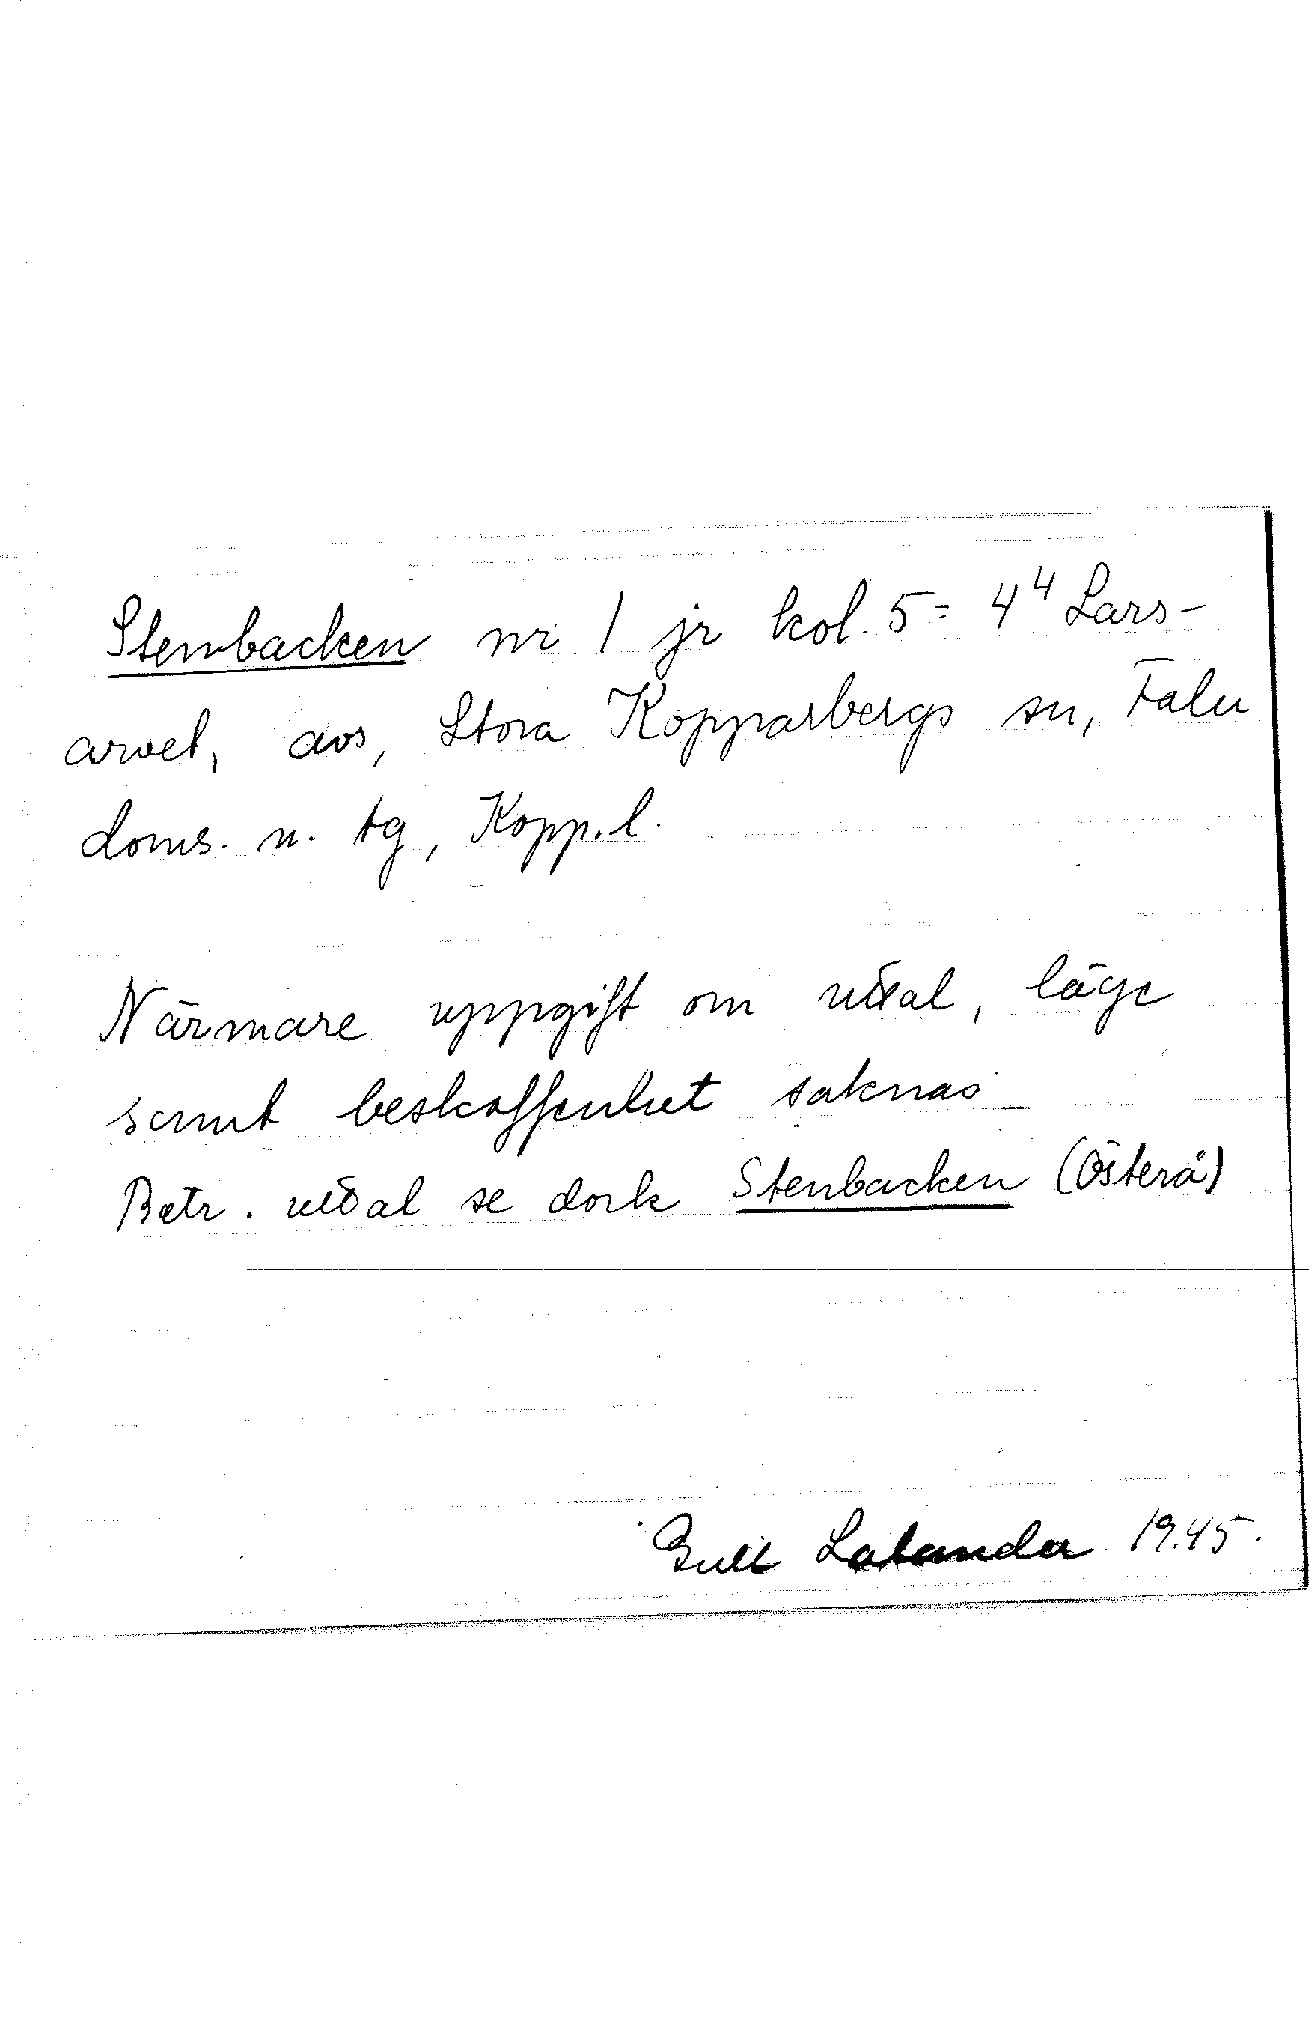 Stenbacken nr 1 jr kol. 5 = 4⁴ Lars-
arvet, avs, Stora Kopparbergs sn, Falu
doms. n. tg, Kopp. l.
Närmare uppgift om uttal, läge
samt beskaffenhet saknas
Betr. uttal se dock Stenbacken (Österå)
Gull Latander 1945.